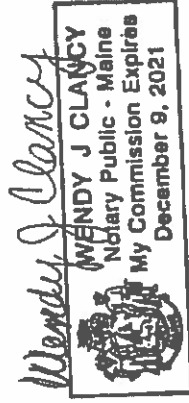 Wendy J Clancy
WENDY J CLANCY
Notary Public - Maine
My Commission Expires
December 9, 2021